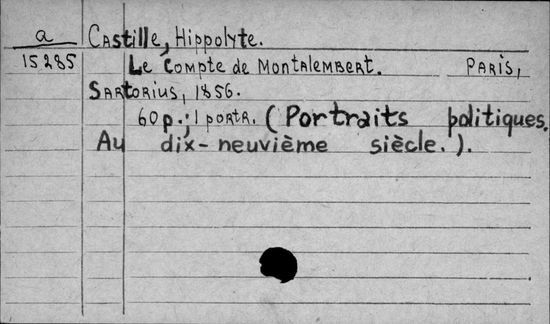 a Castille, Hippolyte.
15285 Le Compte de Montalembert. Paris,
Sartorius, 1856.
60p.; 1 portr. (Portraits politiques.
Au dix-neuvième siècle.).